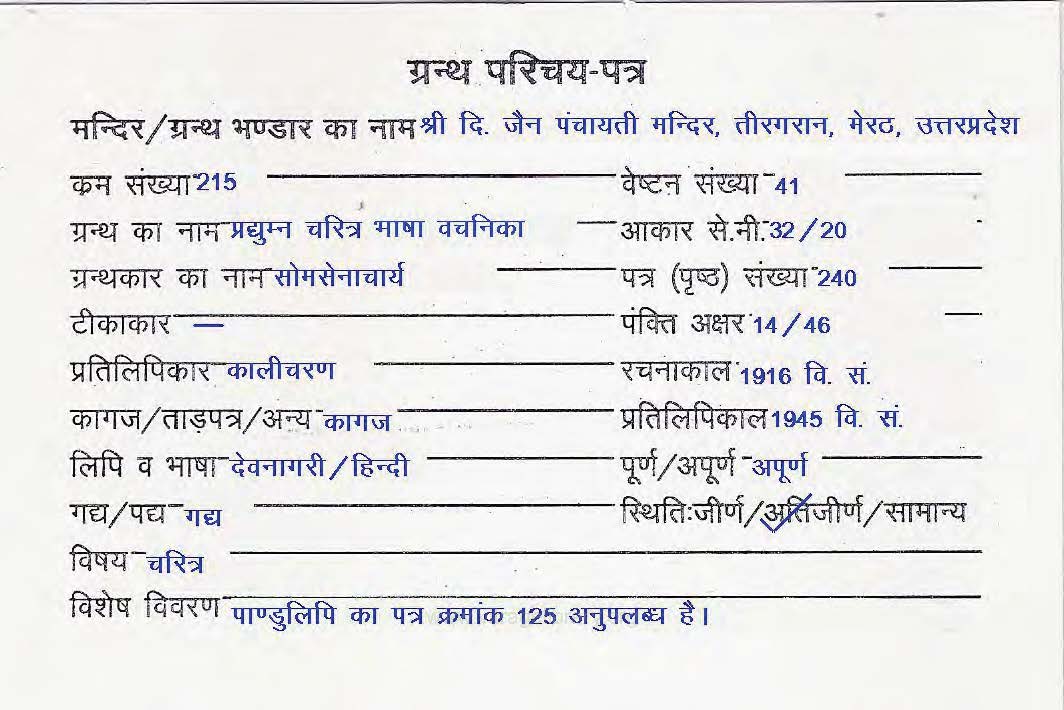 ग्रन्थ परिचय-पत्र
मन्दिर/ग्रन्थ भण्डार का नाम श्री दि. जैन पंचायती मन्दिर, तीरगरान, मेरठ, उत्तरप्रदेश
क्रम संख्या 215 वेष्टन संख्या 41
ग्रन्थ का नाम प्रद्युम्न चरित्र भाषा वचनिका आकार से.मी. 32/20
ग्रन्थकार का नाम सोमसेनाचार्य पत्र (पृष्ठ) संख्या 240
टीकाकार — पंक्ति अक्षर 14/46
प्रतिलिपिकार कालीचरण रचनाकाल 1916 वि. सं.
कागज/ताड़पत्र/अन्य कागज प्रतिलिपिकाल 1945 वि. सं.
लिपि व भाषा देवनागरी/हिन्दी पूर्ण/अपूर्ण अपूर्ण
गद्य/पद्य गद्य स्थितिःजीर्ण/अतिजीर्ण/सामान्य
विषय चरित्र
विशेष विवरण पाण्डुलिपि का पत्र क्रमांक 125 अनुपलब्ध है।